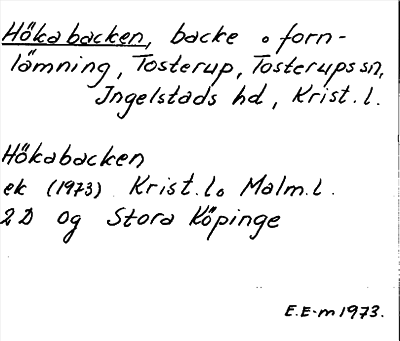 Hökabacken, backe o forn-
lämning, Tosterup, Tosterups sn,
Ingelstads hd, Krist. l.
Hökabacken
ek (1973) Krist. l o Malm. l.
2 D og Stora Köpinge
E.E-m 1973.